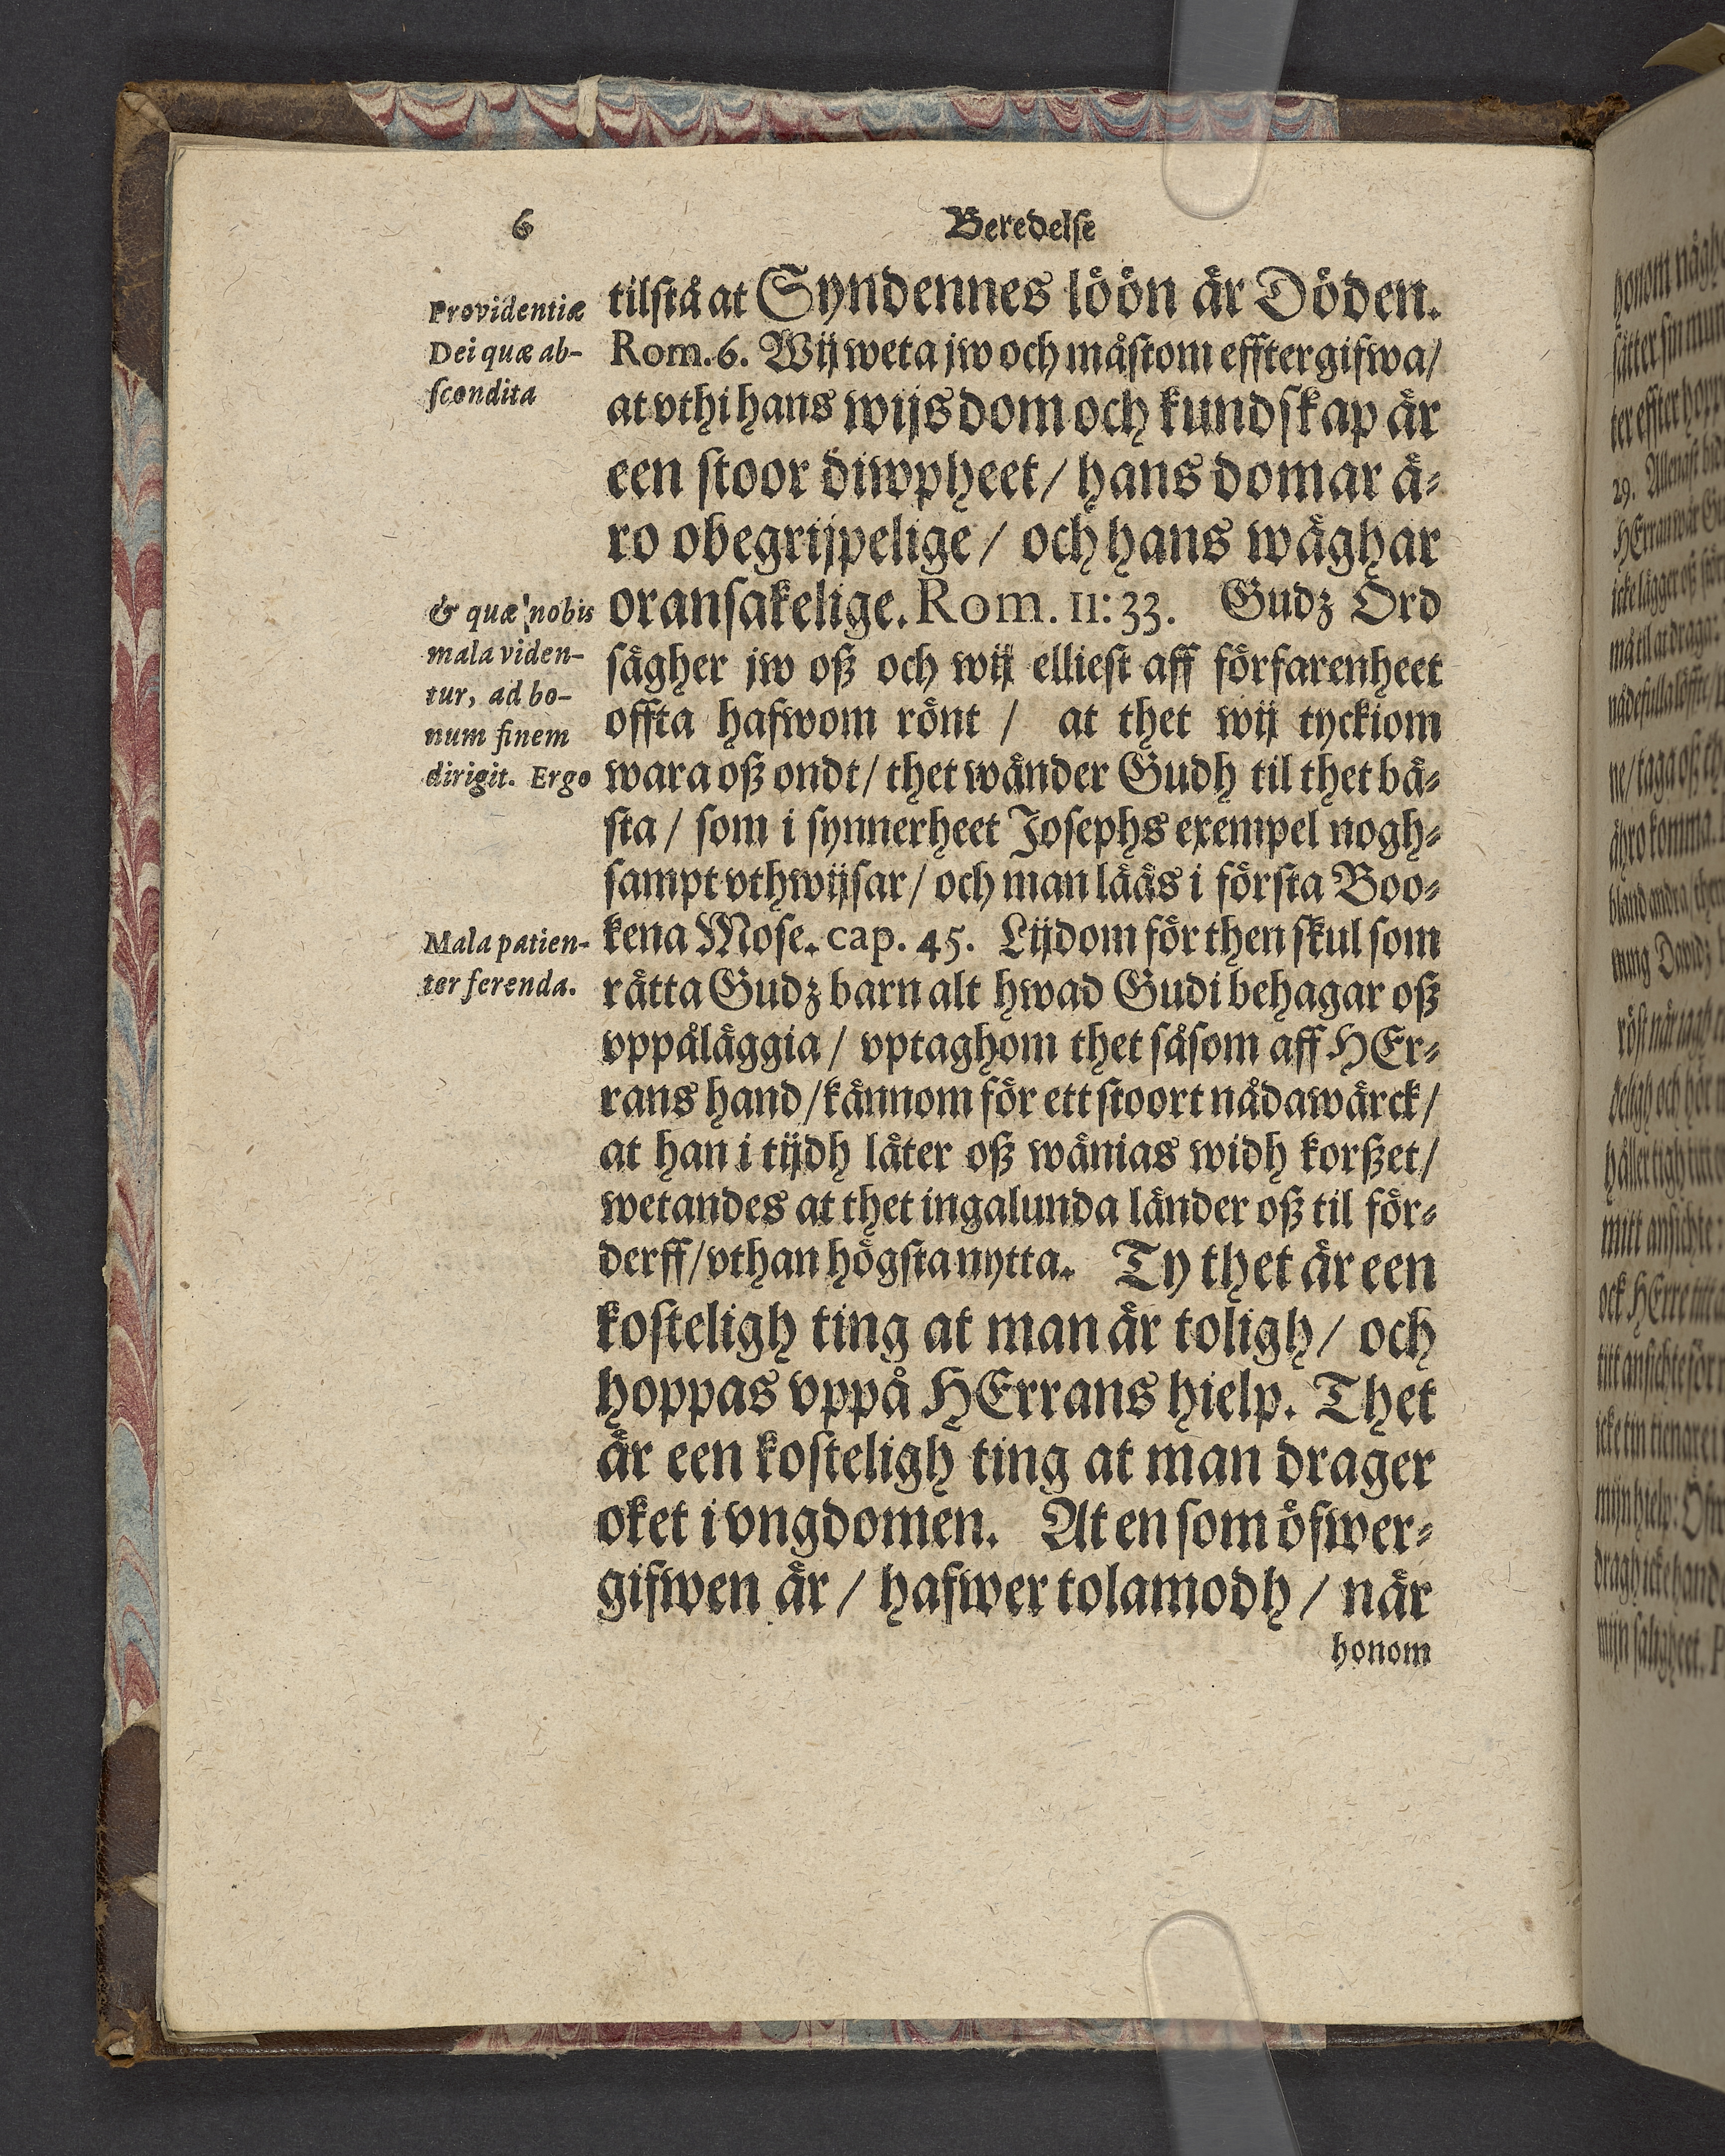 6 Beredelse
Providentiæ
Dei quæ ab-
scondita
& quæ nobis
mala viden-
tur, ad bo-
num finem
dirigit. Ergo
Mala patien-
ter ferenda.
tilstå at Syndennes löön är Döden.
Rom. 6. Wij weta jw och måstom efftergifwa/
at vthi hans wijsdom och kundskap är
een stoor diwpheet/ hans domar ä-
ro obegrijpelige/ och hans wäghar
oransakelige. Rom. 11: 33. Gudz Ord
sägher jw oß och wij elliest aff förfarenheet
offta hafwom rönt / at thet wij tyckiom
wara oß ondt/ thet wänder Gudh til thet bä-
sta/ som i synnerheet Josephs exempel nogh-
sampt vthwijsar/ och man lääs i första Boo-
kena Mose. cap. 45. Lijdom för then skul som
rätta Gudz barn alt hwad Gudi behagar oß
vppåläggia/ vptaghom thet såsom aff HEr-
rans hand/ kännom för ett stoort nådawärck/
at han i tijdh låter oß wänias widh korßet/
wetandes at thet ingalunda länder oß til för-
derff/ vthan högsta nytta. Ty thet är een
kosteligh ting at man är toligh/ och
hoppas vppå HErrans hielp. Thet
är een kosteligh ting at man drager
oket i vngdomen. At en som öfwer-
gifwen är/ hafwer tolamodh/ när
honom